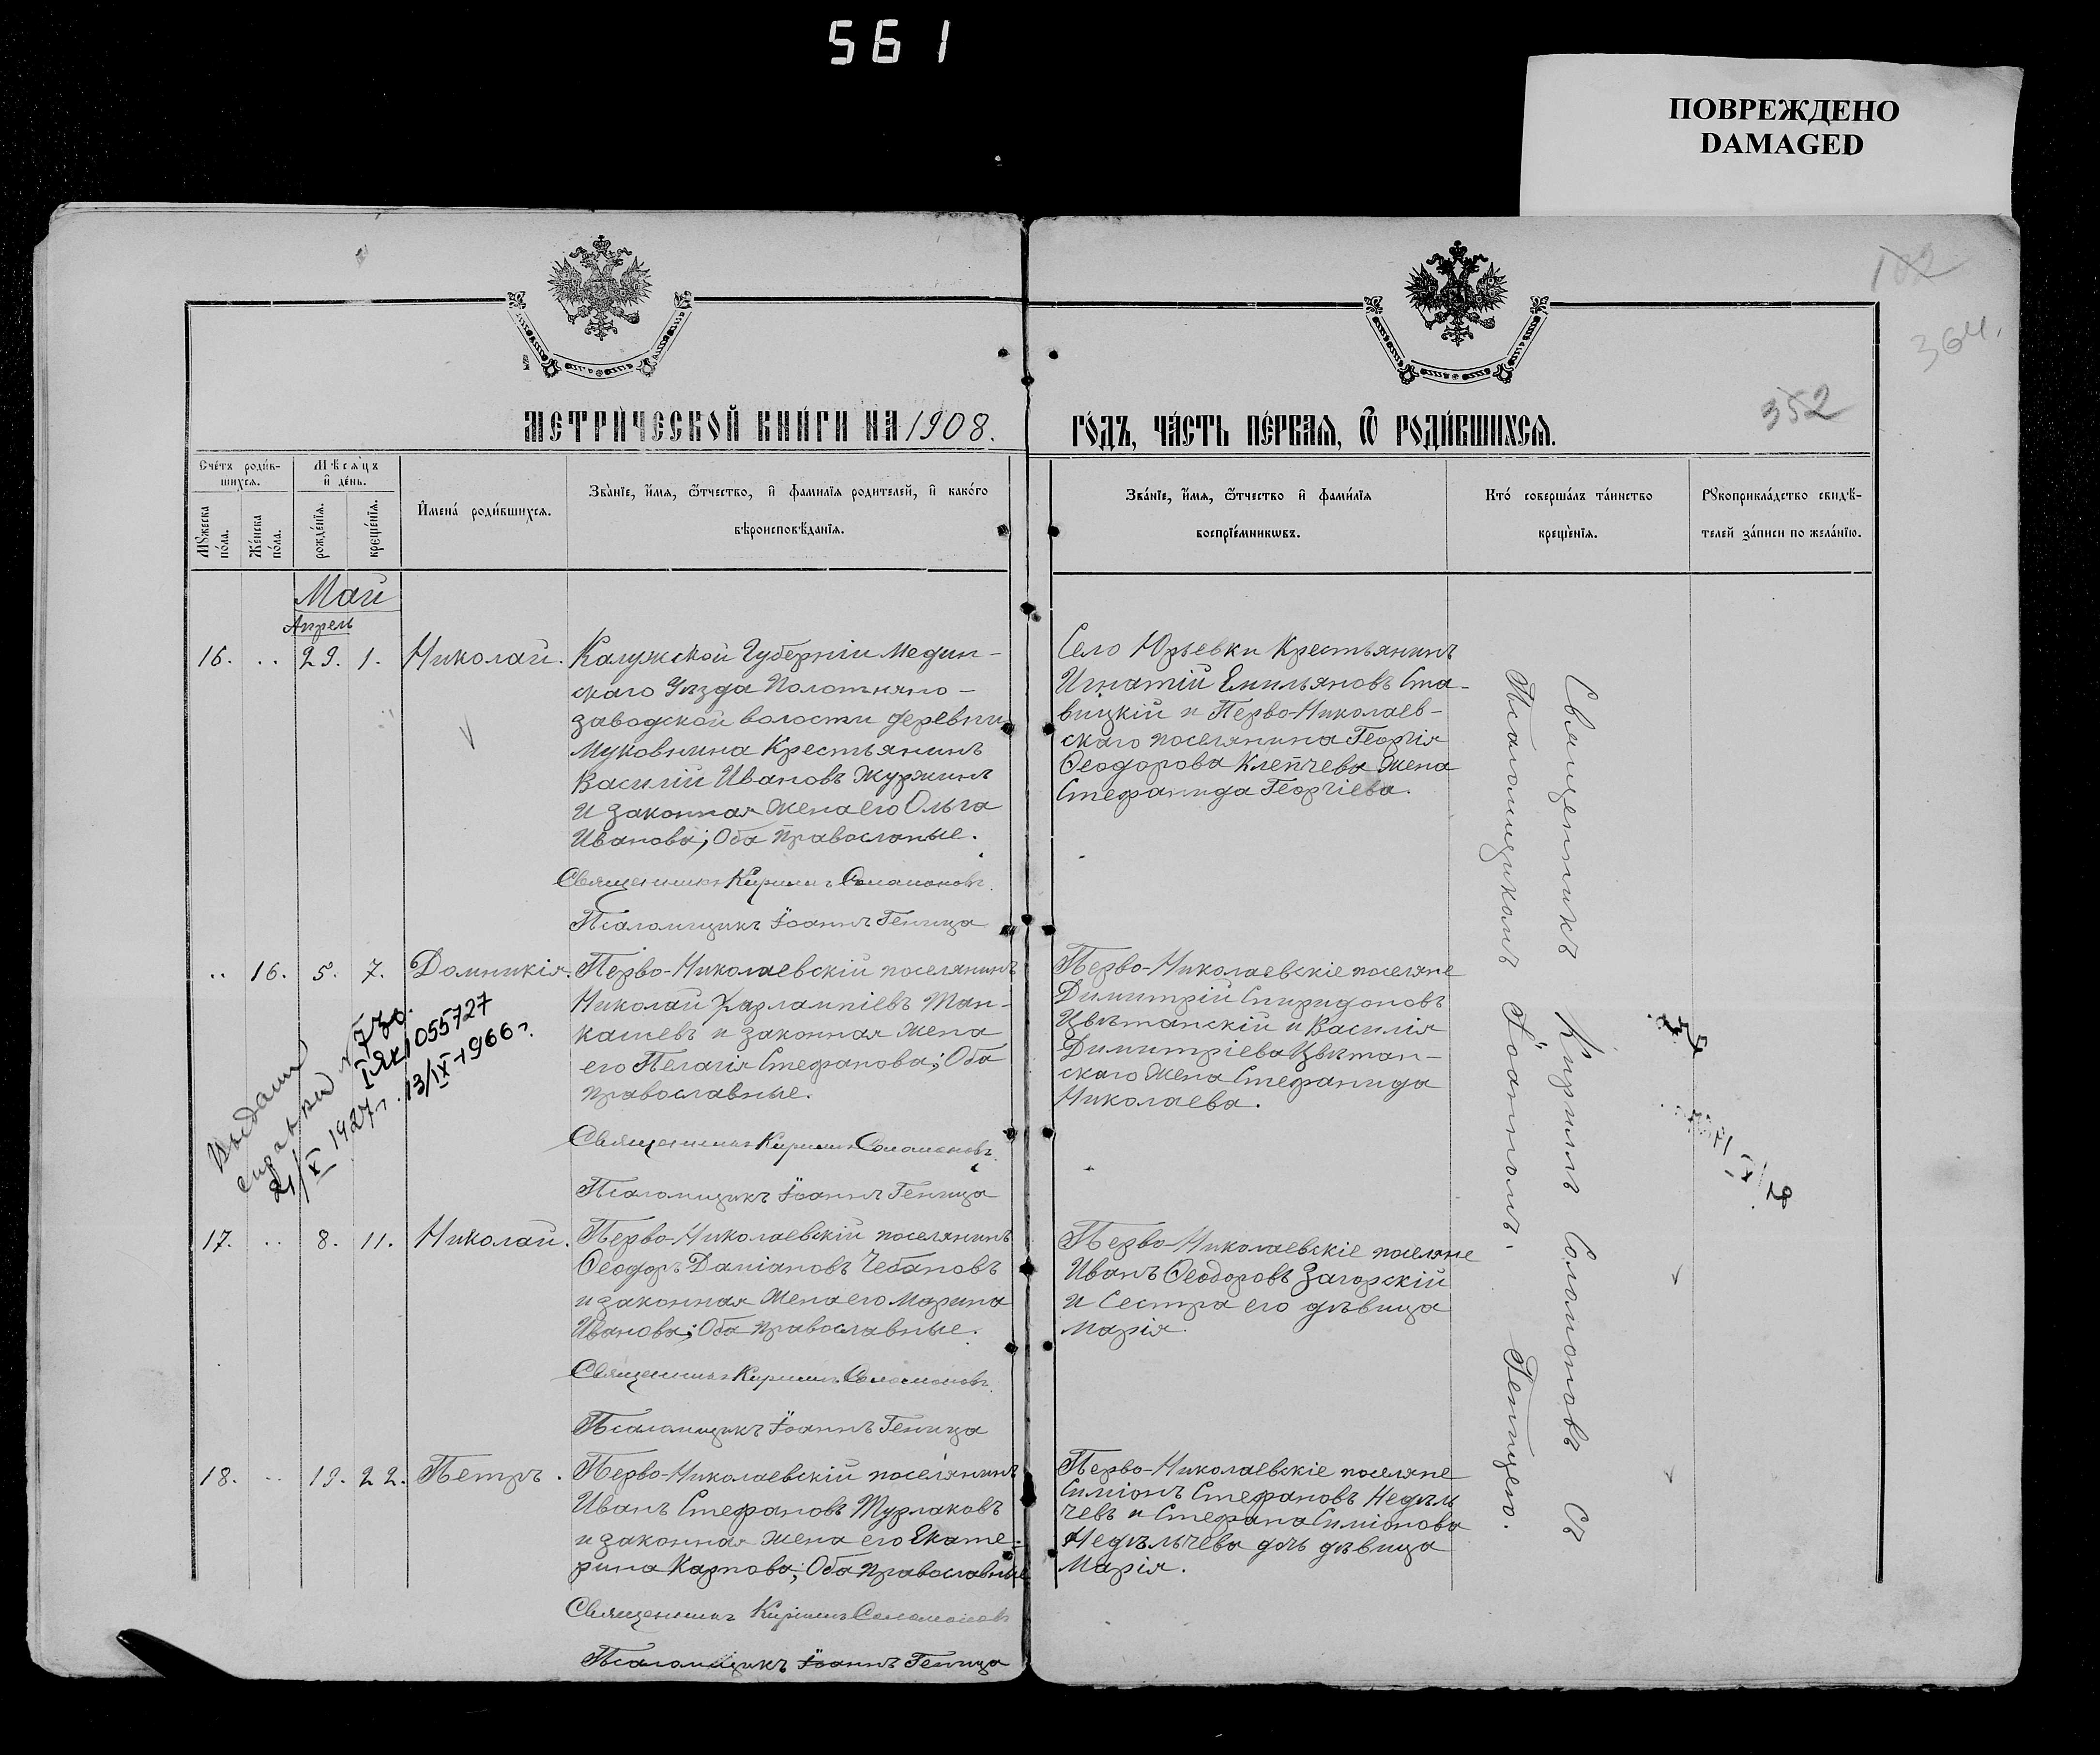 561
ПОВРЕЖДЕНО
DAMAGED
102
364.
352
МЕТРИ́ЧЕСКОЙ КНИ́ГИ НА 1908.
ГО́ДЪ, ЧА́СТЬ ПЕ́РВАЯ, Ѿ РОДИ́ВШИХСЯ.
Сче́тъ роди́в-
шихся.
Мѣ́сяцъ
и҆ де́нь.
Мꙋ́жеска
по́ла.
Же́нска
по́ла.
рожде́нїѧ.
креще́нїѧ.
И҆мена́ роди́вшихсѧ.
Зва́нїе, и҆́мѧ, ѻ҆́тчество, и҆ фами́лїѧ роди́телей, и҆ како́го
вѣроисповѣ́данїѧ.
Зва́нїе, и҆́мѧ, ѻ҆́тчество и҆ фами́лїѧ
воспрїе́мникѡвъ.
Кто́ соверша́лъ та́инство
креще́нїѧ.
Рꙋкоприкла́дство свидѣ́-
телей за́писи по жела́нїю.
Май
Апрель
16. .. 29. 1. Николай.
Калужской Губерніи Медин-
скаго Уѣзда Полотняно-
заводской волости деревни
Муковнина Крестьянинъ
Василій Ивановъ Журжинъ
и законная жена его Ольга
Иванова; Оба православные.
Священникъ Кириллъ Соломоновъ.
Псаломщикъ Іоаннъ Геница
Село Юрьевки Крестьянинъ
Игнатій Емильяновъ Ста-
вицкій и Перво-Николаев-
скаго поселянина Георгія
Ѳеодорова Клепчева жена
Стефанида Георгіева.
.. 16. 5. 7. Домникія.
Перво-Николаевскій поселянинъ
Николай Харлампіевъ Ман-
кашевъ и законная жена
его Пелагія Стефанова; Оба
православные.
Священникъ Кириллъ Соломоновъ.
Псаломщикъ Іоаннъ Геница
Перво-Николаевскіе поселяне
Димитрій Спиридоновъ
Цвѣтанскій и Василія
Димитріева Цвѣтан-
скаго жена Стефанида
Николаева.
Выданы
справки № 730.
21/X 1927 г. I ЯК 1055727
13/IX-1966 г.
17. .. 8. 11. Николай.
Перво-Николаевскій поселянинъ
Ѳеодоръ Даміановъ Чебановъ
и законная жена его Марина
Иванова; Оба православные.
Священникъ Кириллъ Соломоновъ.
Псаломщикъ Іоаннъ Геница
Перво-Николаевскіе поселяне
Иванъ Ѳеодоровъ Загорскій
и сестра его дѣвица
Марія.
18. .. 19. 22. Петръ.
Перво-Николаевскій поселянинъ
Иванъ Стефановъ Турлаковъ
и законная жена его Екате-
рина Карпова; Оба православные
Священникъ Кириллъ Соломоновъ
Псаломщикъ Іоаннъ Геница
Перво-Николаевскіе поселяне
Симіонъ Стефановъ Недѣль
чевъ и Стефана Симіонова
Недѣльчева дочь дѣвица
Марія.
Священникъ Кириллъ Соломоновъ Съ
Псаломщикомъ Іоанномъ Геницею.